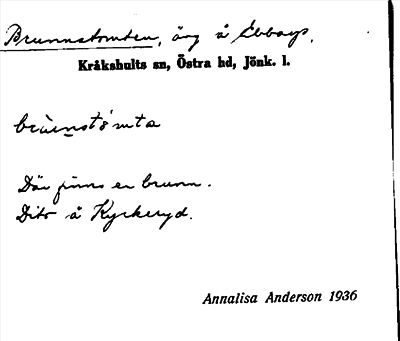 Brunnstomten, äng å Ebbarp.
Kråkshults sn, Östra hd, Jönk. l.
Där finns en brunn.
Dito å Kyrkeryd.
Annalisa Anderson 1936